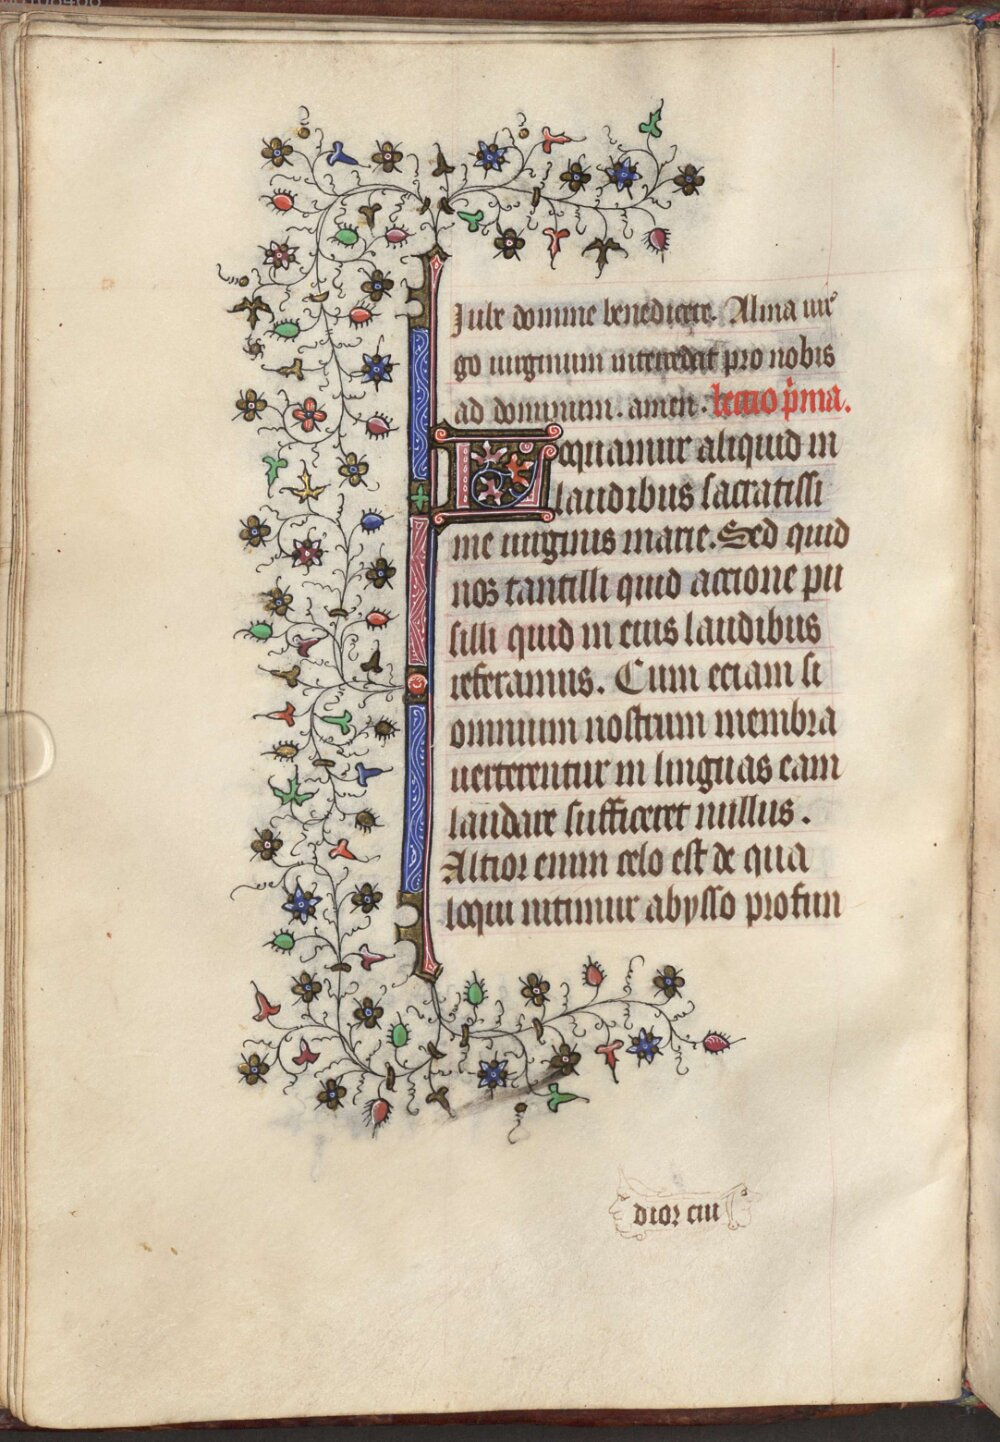 Iube domine benedicere. Alma vir
go virginum intercedat pro nobis
ad dominum. amen. lectio p̄ma.
Loquamur aliquid in
laudibus sacratissi
me virginis marie. Sed quid
nos tantilli quid accione pu
silli quid in eius laudibus
referamus. Cum eciam si
omnium nostrum membra
verterentur in linguas eam
laudare sufficeret nullus.
Altior enim celo est de qua
loqui nitimur abysso profun
dior cui